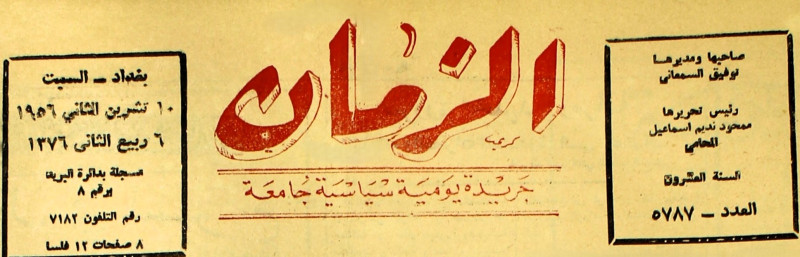 صاحبها ومديرها
توفيق السمعاني
رئيس تحريرها
محمود نديم اسماعيل
المحامي
السنة العشرون
العدد ــ ٥٧٨٧
الزمان
كريم
جريدة يومية سياسية جامعة
بغداد ــ السبت
١٠ تشرين الثاني ١٩٥٦
٦ ربيع الثاني ١٣٧٦
مسجلة بدائرة البريد
برقم ٨
رقم التلفون ٧١٨٢
٨ صفحات ١٢ فلسا